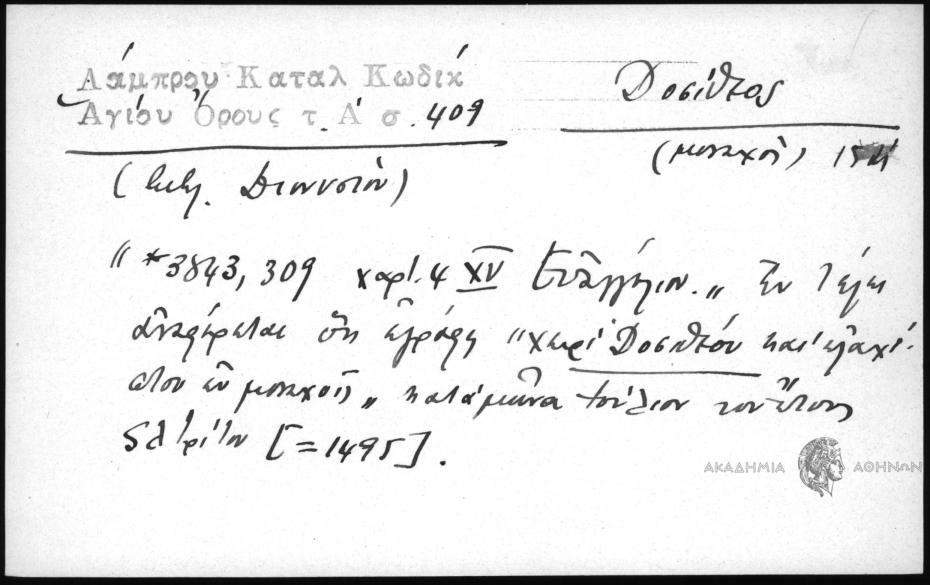 Λάμπρου Καταλ Κωδίκ
Ἁγίου Ὄρους τ. Α΄ σ. 409
Δοσίθεος
(μοναχός) 15
(Διονυσίου)
"*3843, 309 χαρτ. 4 XV Εὐαγγέλιον." Ἐν τέλει
ἀναφέρεται ὅτι ἐγράφη "χειρὶ Δοσιθέου καὶ ἐλαχί-
στου ἐν μοναχοῖς" κατὰ μῆνα Ἰούλιον τοῦ ἔτους
ϛλ τρίτου [=1495].
ΑΚΑΔΗΜΙΑ ΑΘΗΝΩΝ